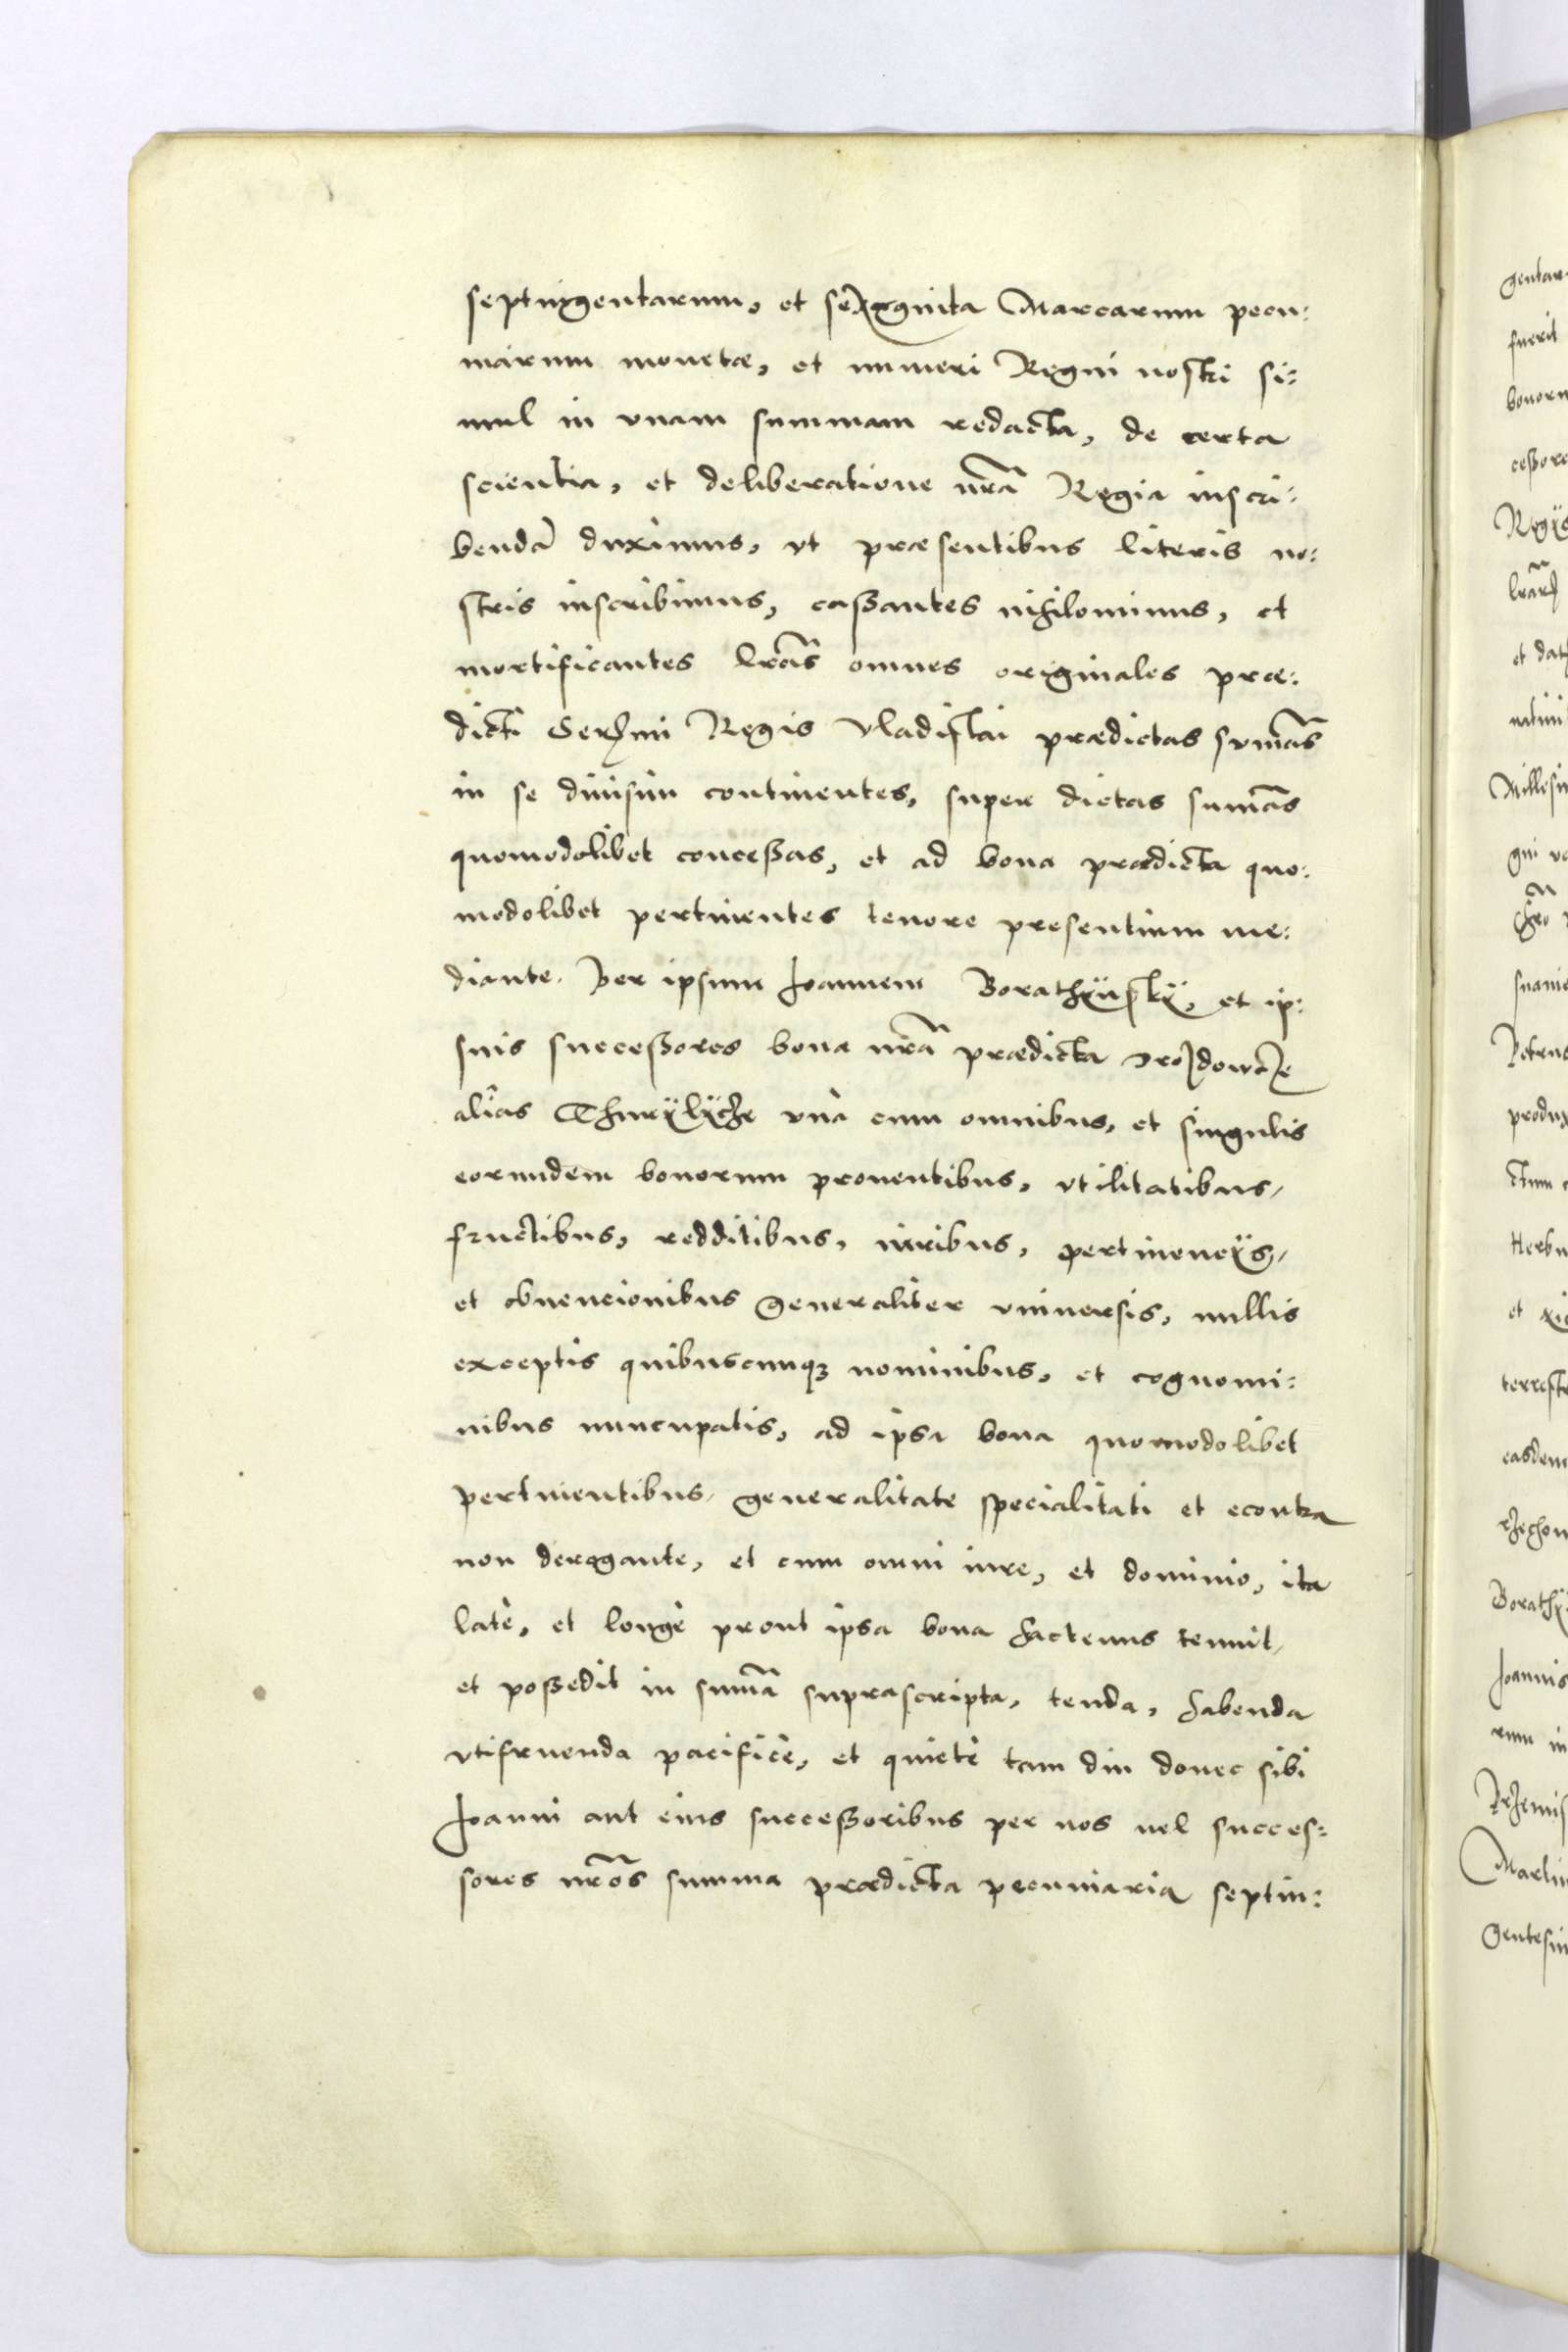 septingentarum, et sexaginta Marcarum pecu:
niarum monetæ, et numeri Regni nostri si:
mul in vnam summam redacta, de certa
scientia, et deliberatione nr̃a Regia inscri:
benda duximus, vt præsentibus literis no:
stris inscribimus, caßantes nihilominus, et
mortificantes lr̃as omnes originales præ:
dicti Sermi Regis Vladislai prædictas sum̃as
in se diuisim continentes, super dictas sum̃as
quomodolibet conceßas, et ad bona prædicta quo:
modolibet pertinentes tenore presentium me:
diante. Per ipsum Joannem Borathÿnskÿ, et ip:
suis succeßores bona nr̃a prædicta
alias una cum omnibus, et singulis
eorundem bonorum prouentibus, vtilitatibus,
fructibus, redditibus, iuribus, pertinencÿs,
et obuencionibus generaliter vniuersis, nullis
exceptis quibuscunqꝫ nominibus, et cognomi:
nibus nuncupatis, ad ipsa bona quomodolibet
pertinentibus, generalitate specialitati et econtra
non derogante, et cum omni iure, et dominio, ita
latè, et longè prout ipsa bona hactenus tenuit,
et poßedit in sum̃a suprascripta, tenda, habenda
vtifruenda pacificè, et quietè tam diu donec sibi
Joanni aut eius succeßoribus per nos uel succes:
sores nr̃os summa prædicta pecuniaria septin:
gentar
fuerit
bonoru
ceßore
Regÿs
et dat
Millesi
Petrus
produx
ctum
Herbu
et
terrest
easdem
Borathÿ
Joannis
rum in
Martin
Gentesim